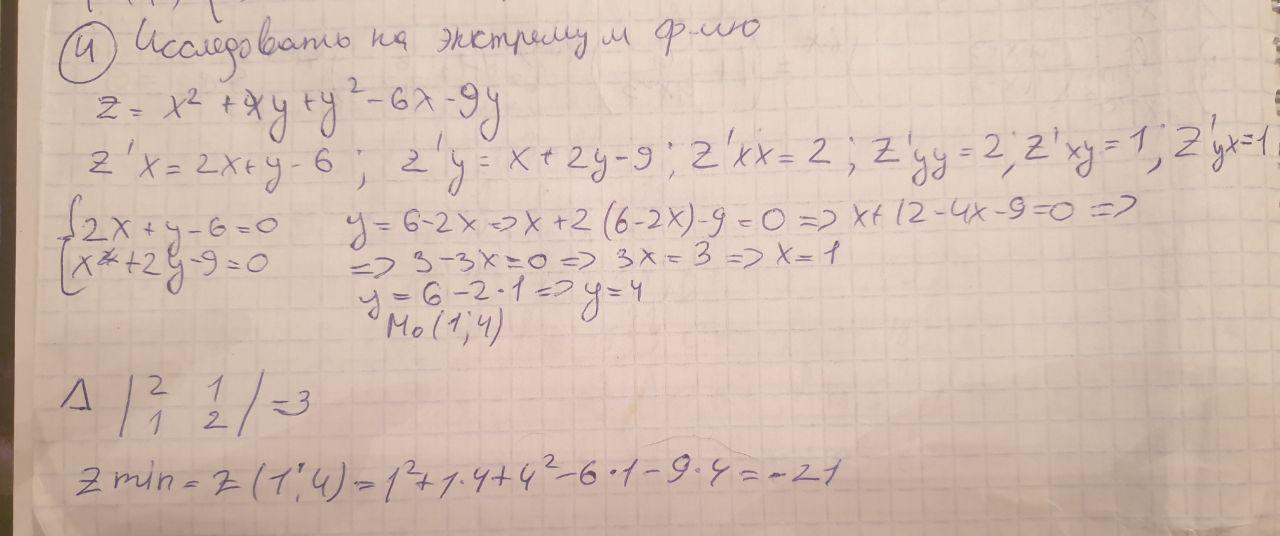 ④ Исследовать на экстремум ф-лю
z = x² + xy + y² - 6x - 9y
z'x = 2x + y - 6 ; z'y = x + 2y - 9 ; z'xx = 2 ; z'yy = 2 ; z'xy = 1 ; z'yx = 1
{ 2x + y - 6 = 0 y = 6 - 2x => x + 2 (6 - 2x) - 9 = 0 => x + 12 - 4x - 9 = 0 =>
x + 2y - 9 = 0 => 3 - 3x = 0 => 3x = 3 => x = 1
y = 6 - 2 · 1 => y = 4
M₀ (1; 4)
Δ | 2 1 | = 3
| 1 2 |
z min = z (1; 4) = 1² + 1·4 + 4² - 6·1 - 9·4 = -21